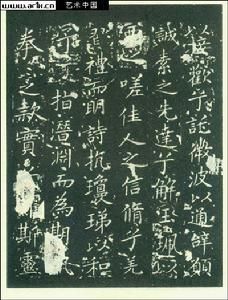 www.artx.cn 艺术中国
接歡兮託微波以通辭願
誠素之先達兮解玉珮
嗟佳人之信脩兮羌
習禮而明詩抗瓊珶以和
予兮指潛淵而為期
之款實斯靈